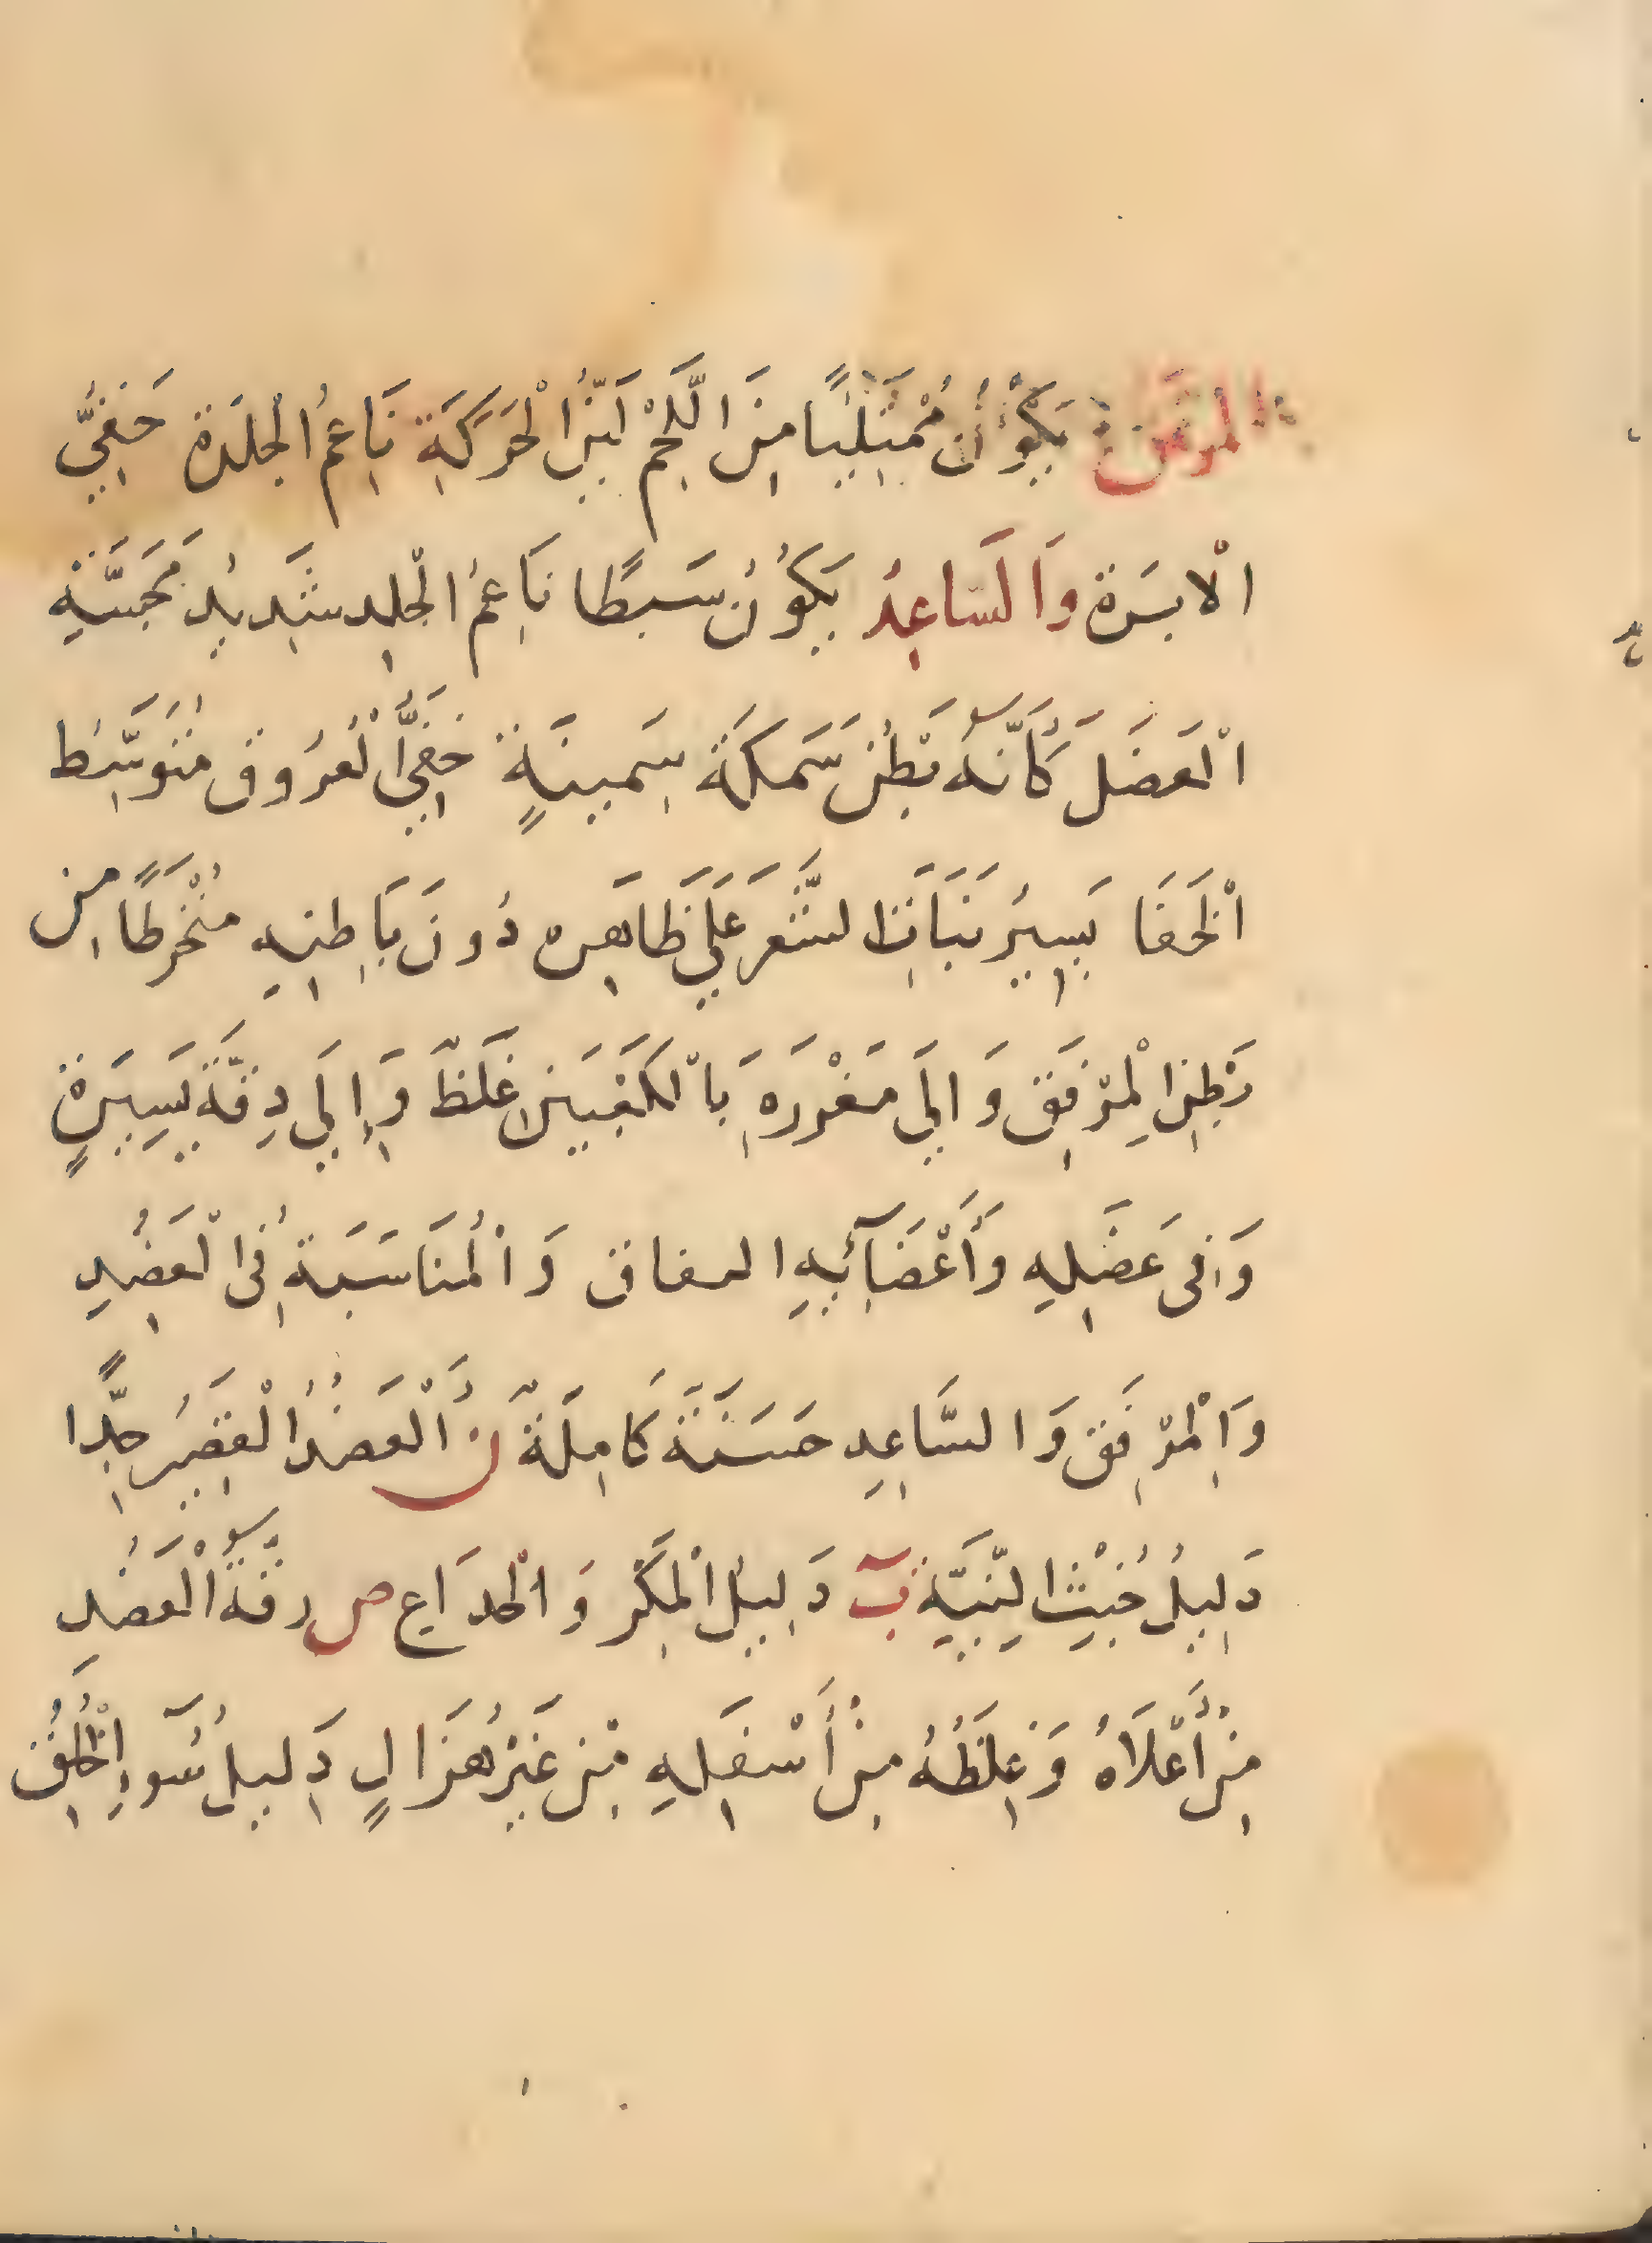 المرفق يَكُوْنُ مُمْتَلِيًا مِنَ اللَّحْمِ لَيِّنُ الْحَرَكَةِ نَاعِمُ الْجِلْدَة خَفِيُّ
الْابرَة وَالسَاعِدُ يَكُوُنُ سَبطًا نَاعِمُ الْجِلِد شَدِيدُ مَجَسَّةِ
الْعَضَلَ كَأَنَّهُ بَطْنُ سَمَكَةَ سَمِينَةٍ خَفِيُّ الْعُرُوق مُتَوَسَّط
الْخَفَا يَسِيرُ نَبَاتَ الشَّعَر عَلَي ظَاهِره دُونَ بَاطِنِهِ مُنْخَرِطًا مِن
بَطِن الْمِرْفَق وَالَي مَغْرَزِهَ بَالْكَعْبَيَنِ غَلَظَ وَإِلَي دِقَّةَ يَسِيَرةٍ
وَفِى عَضَلِهِ وَأَعْضَآئِهِ الىفاق وَالْمُنَاسَبَةُ فِى الْعَضُدِ
وَالْمرْفَقِ وَالسَّاعِدِ حَسَنَةَ كَامِلَةٌ ن اَلْعَضُدُ الْقَصِيَرُ جِدًّا
دَلِيلُ خُبْثِ النِيَّةِ ب دَلِيلُ الْمَكْرِ وَالْخدَاعِ ص دِقَّةُ الْعَضُدِ
مِنْ أَعْلَاهُ وَغِلَظُهُ مِنْ أَسْفَلِهِ مِنْ غَيْرُ هُزَالٍ دَلِيلُ سُوَءِ الْخُلُقِ